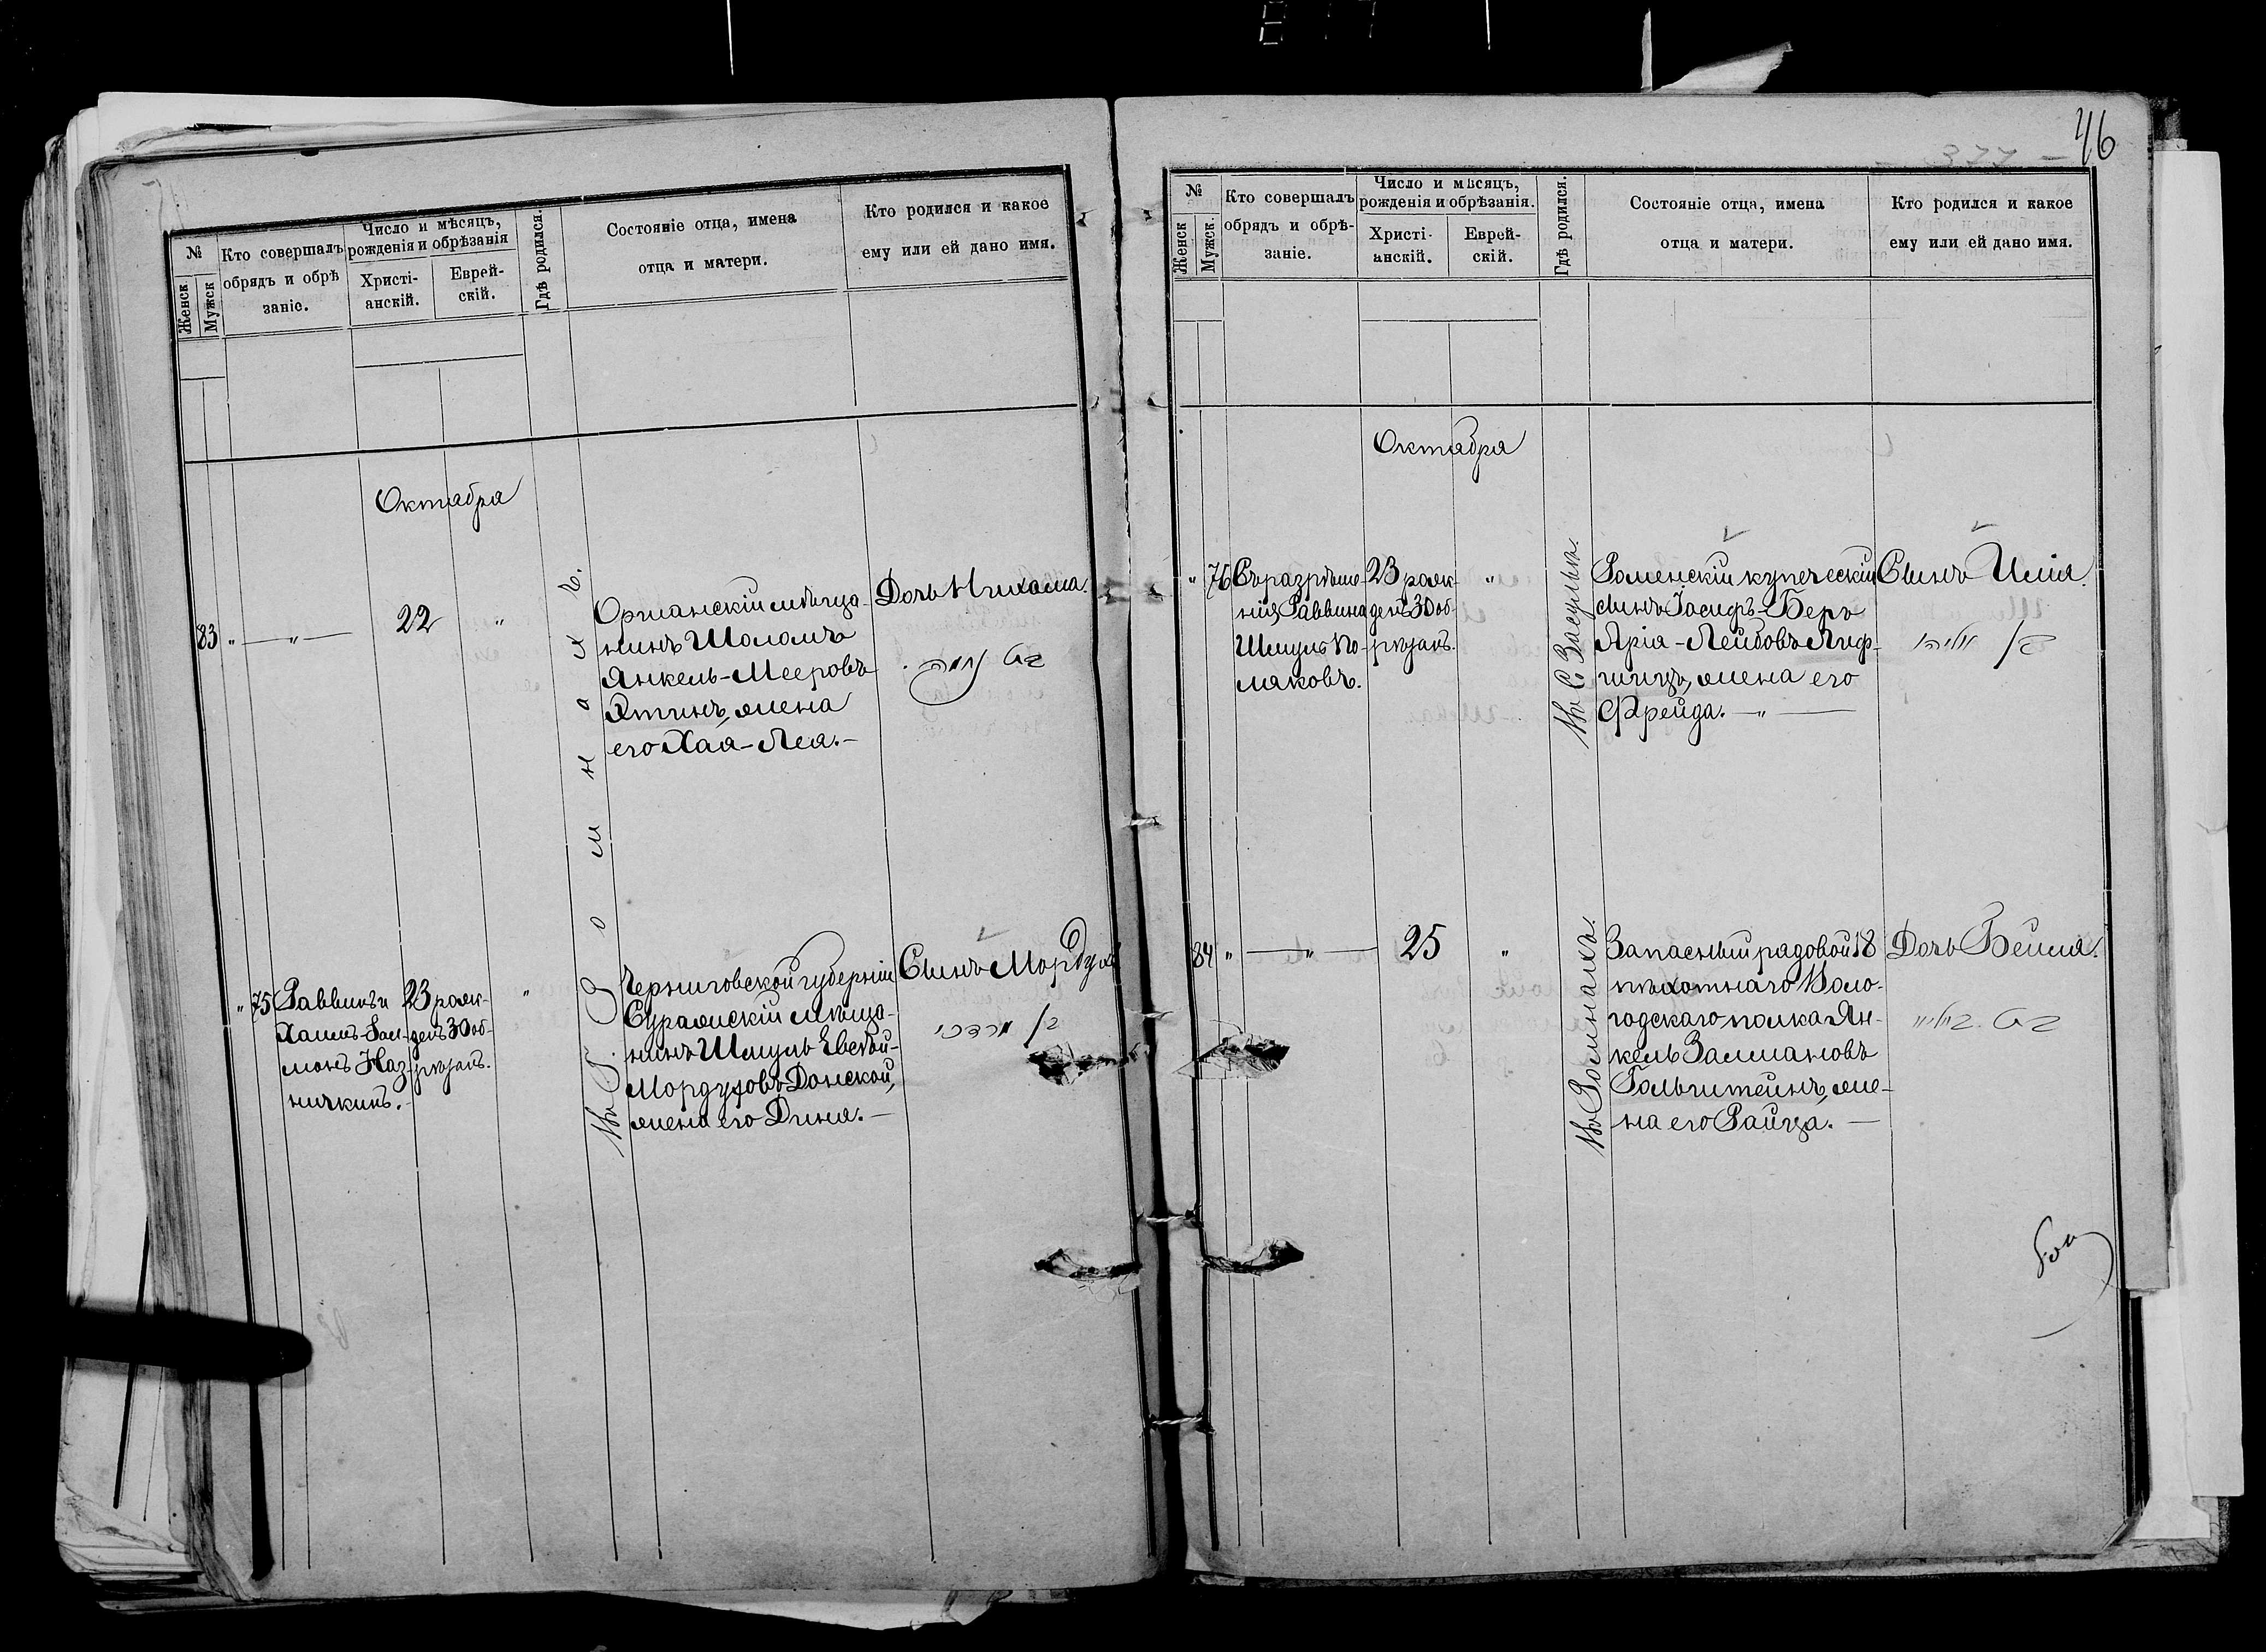 №
Женск
Мужск
Кто совершалъ
обрядъ и обрѣ
заніе.
Число и мѣсяцъ,
рожденія и обрѣзанія
Христі-
анскій.
Еврей-
скій.
Гдѣ родился.
Состояніе отца, имена
отца и матери.
Кто родился и какое
ему или ей дано имя.
Октября
83 " — " —
22
"
Въ Г. Роминахъ.
Оршанскій мѣща-
нинъ Шоломъ
Янкель-Мееровъ
Этинъ, жена
его Хая-Лея. —
Дочь Нихама.
בת נחמה.
" 75
Раввинъ и
Хаимъ-Зал-
монъ Наз-
ничкинъ.
23 рож-
денъ 30 об-
рѣзанъ.
"
Черниговской губерніи
Суражскій мѣща-
нинъ Шмуль Евсѣй-
Мордуховъ Донской,
жена его Дина. —
Сынъ Мордухъ
בן מרדכי
46
№
Женск
Мужск.
Кто совершалъ
обрядъ и обрѣ-
заніе.
Число и мѣсяцъ,
рожденія и обрѣзанія.
Христі-
анскій.
Еврей-
скій.
Гдѣ родился.
Состояніе отца, имена
отца и матери.
Кто родился и какое
ему или ей дано имя.
Октября
" 76
Съ разрѣше-
нія Раввина
Шмуль По-
ляковъ.
23 рож-
денъ 30 об-
рѣзанъ.
"
Въ С. Засульѣ.
Роменскій купеческій
сынъ Іосифъ-Беръ
Арія-Лейбовъ Лиф-
шицъ, жена его
Фрейда. — " —
Сынъ Илія.
בן אליהו
84 " — " —
25
"
Въ Роминахъ.
Запасный рядовой 18
пѣхотнаго Воло-
годскаго полка Ян-
кель Залмановъ
Гольштейнъ, же-
на его Райца. —
Дочь Бейля.
בת ביילא